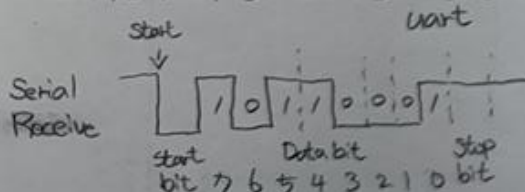 uart
Start
Serial
Receive
1 0 1 1 0 0 0 1
Start Data bit Stop
bit 7 6 5 4 3 2 1 0 bit